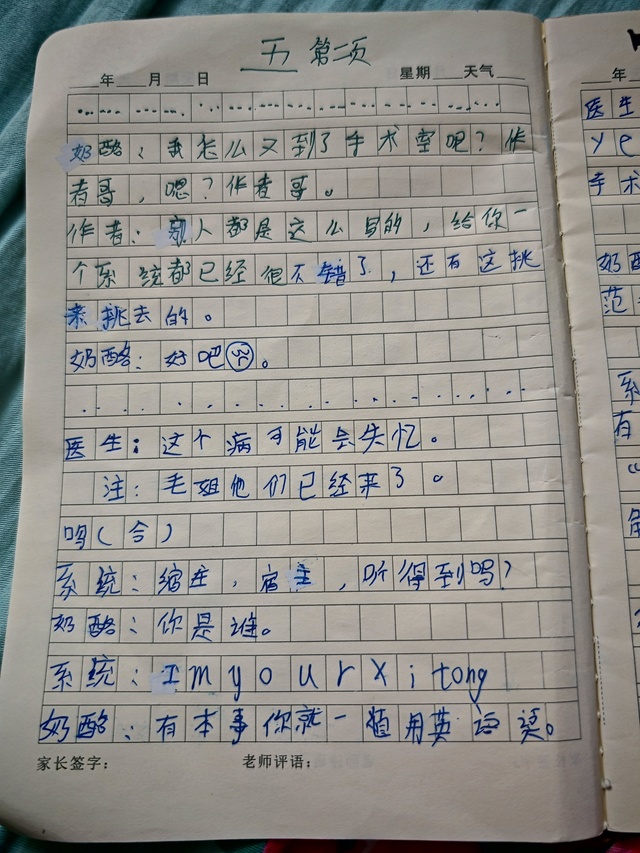 五 第二页
年 月 日 星期 天气
奶酪：我怎么又到了手术室吧？作
者哥，嗯？作者哥。
作者：别人都是这么写的，给你一
个系统都已经很不错了，还有这挑
来挑去的。
奶酪：好吧。
医生：这个病可能会失忆。
注：毛姐他们已经来了。
吗（合）
系统：宿主，宿主，听得到吗？
奶酪：你是谁。
系统：Im your xitong
奶酪：有本事你就一直用英语说。
家长签字： 老师评语：
年
医生
ye
手术
奶酪
范
系
有